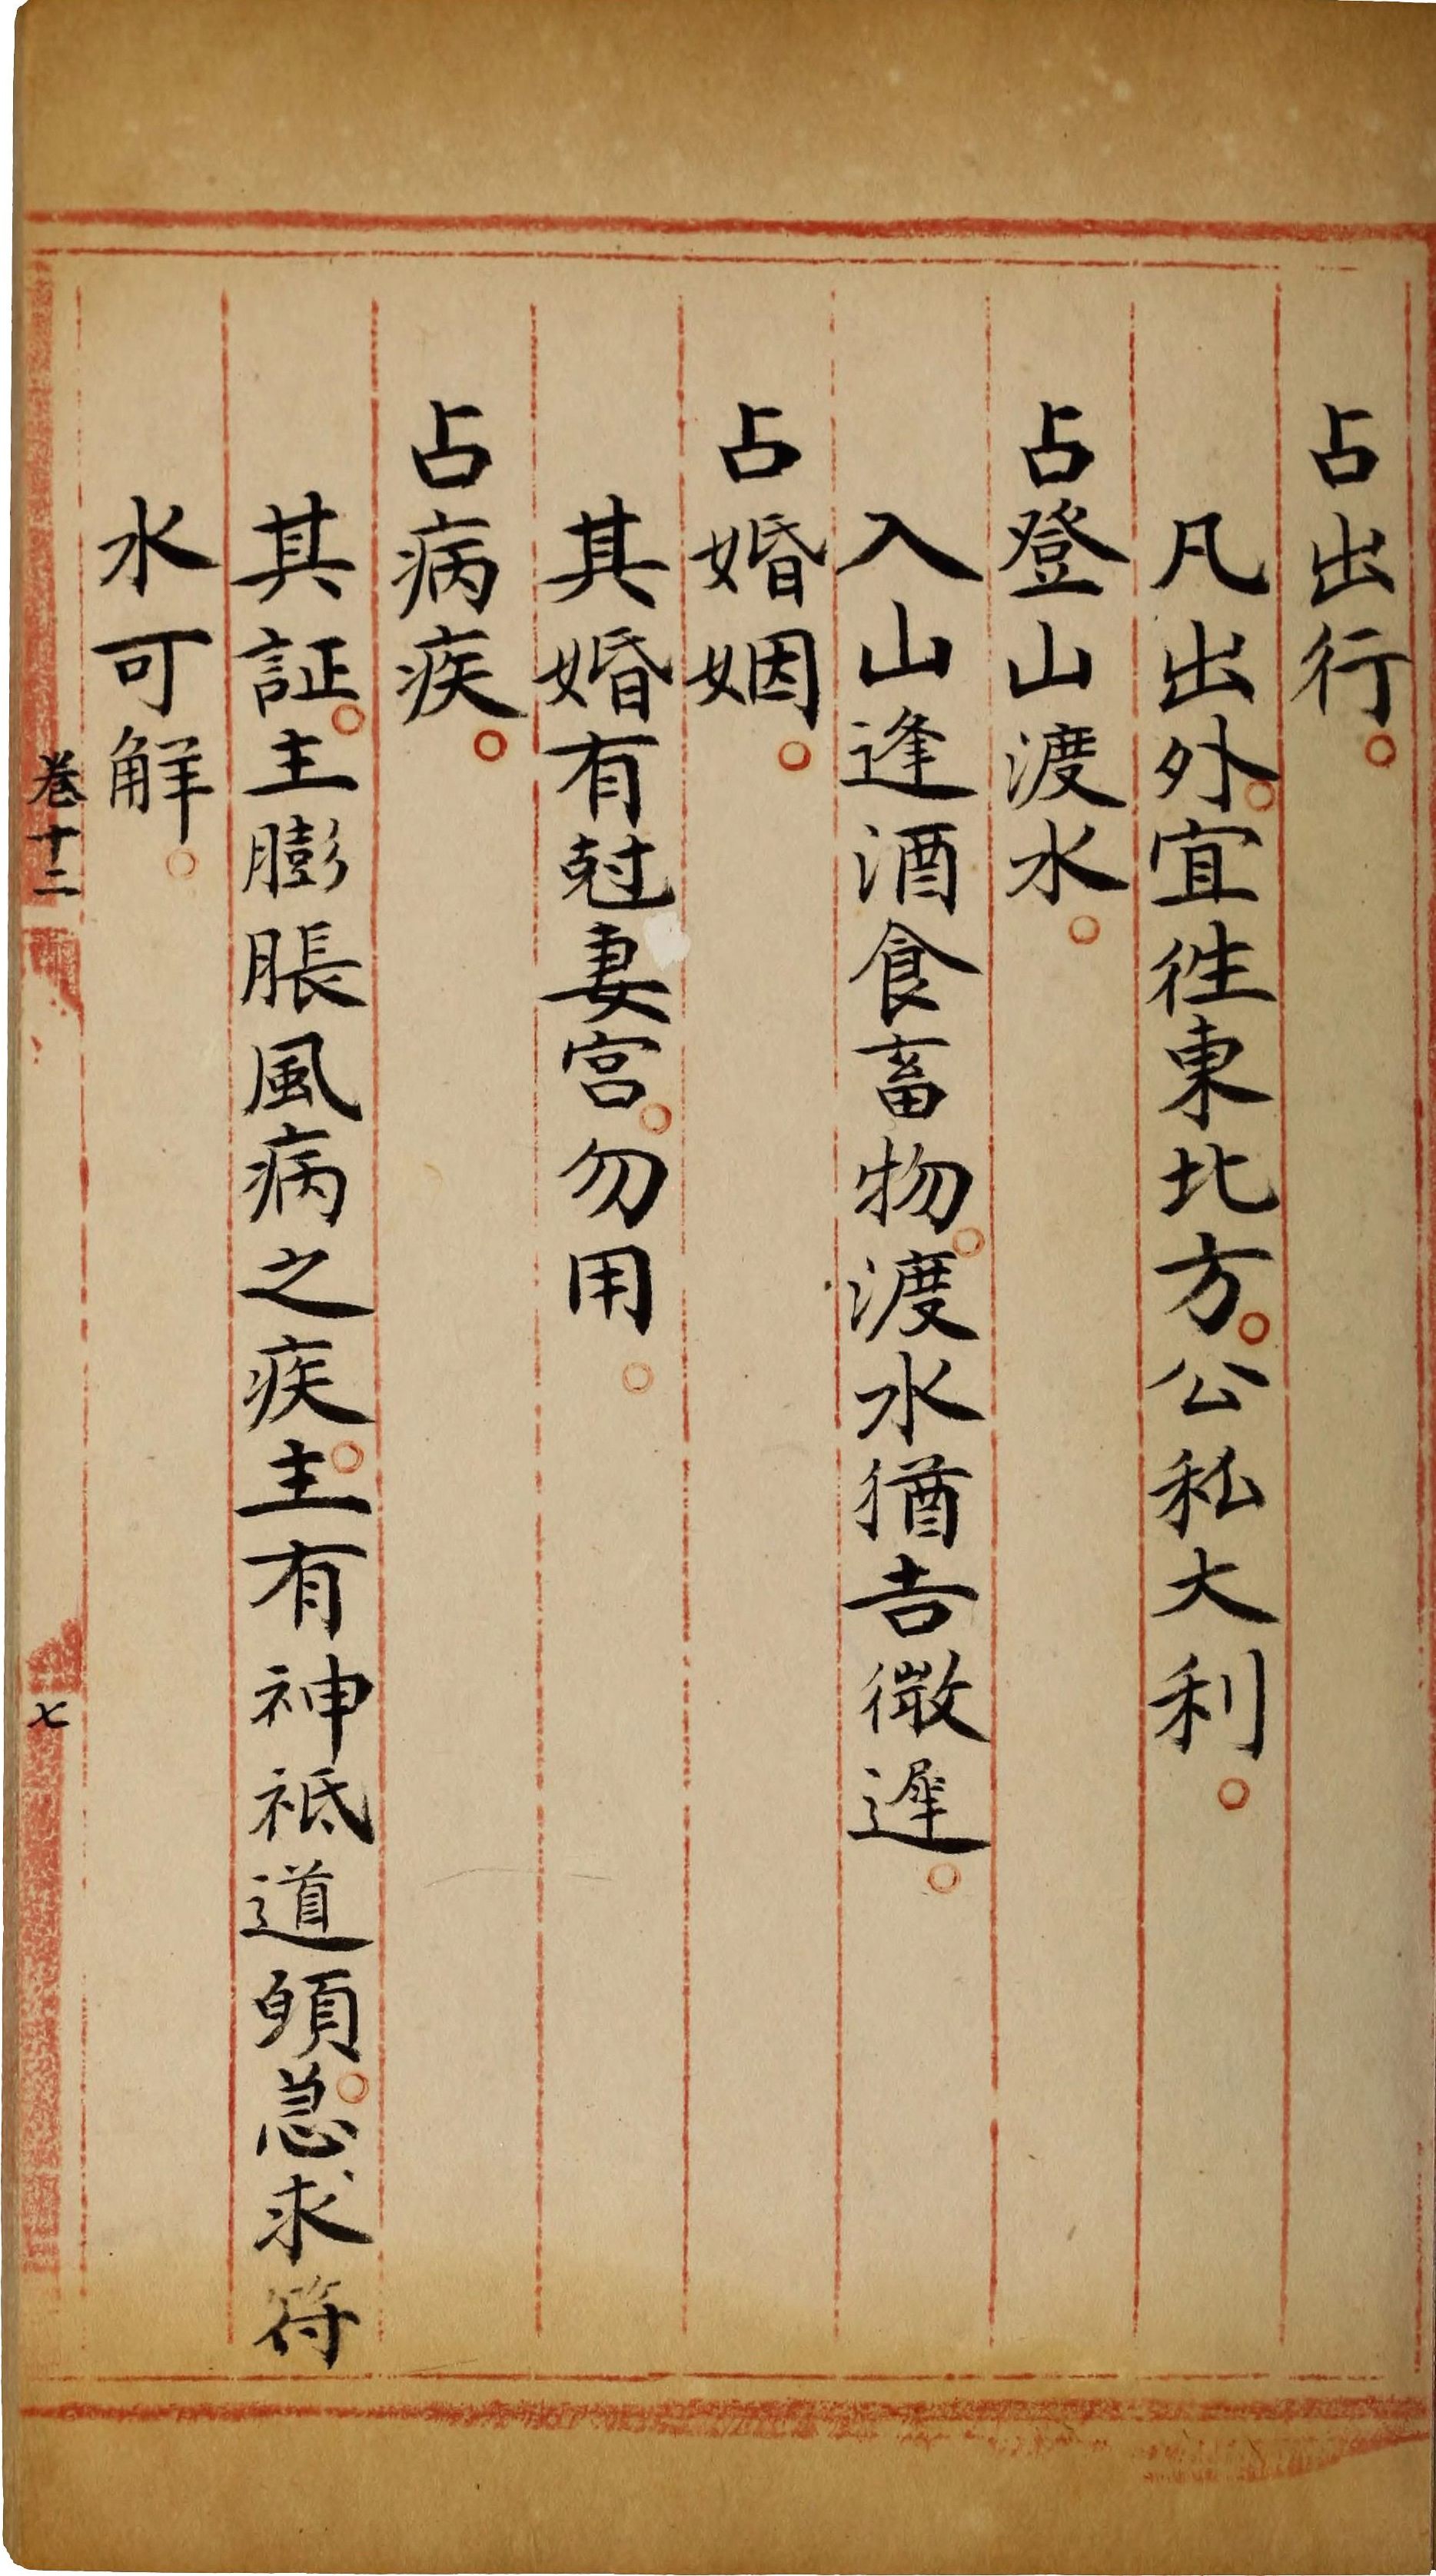 占出行。
凡出外。宜徃東北方。公私大利。
占登山渡水。
入山逢酒食畜物。渡水猶吉微遲。
占婚姻。
其婚有尅妻宮。勿用。
占病疾。
其証。主膨脹風病之疾。主有神祗道頭。急求符
水可解。
卷十二
七